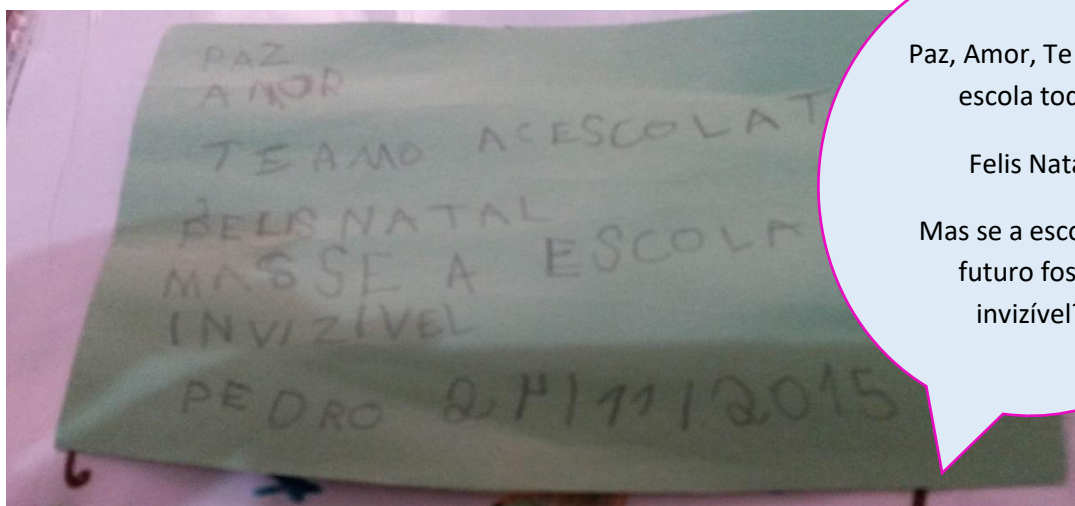 PAZ
AMOR
TE AMO A ESCOLA T
FELIS NATAL
MAS SE A ESCOLA
INVIZIVEL
PEDRO 24/11/2015
Paz, Amor, Te
escola
Felis
Mas se a
futuro
invizível